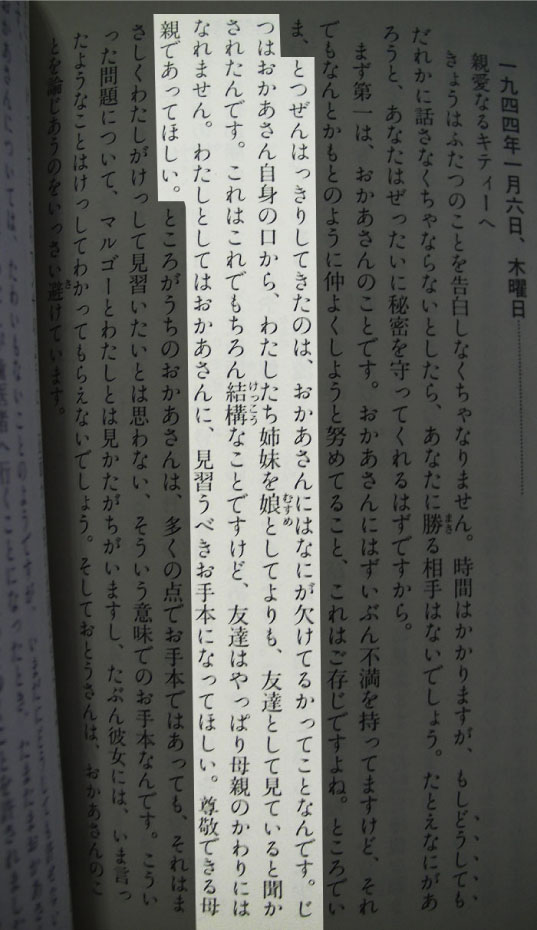 一九四四年一月六日、木曜日
親愛なるキティーへ
きょうはふたつのことを告白しなくちゃなりません。時間はかかりますが、もしどうしても
だれかに話さなくちゃならないとしたら、あなたに勝る相手はないでしょう。たとえなにがあ
ろうと、あなたはぜったいに秘密を守ってくれるはずですから。
まず第一は、おかあさんのことです。おかあさんにはずいぶん不満を持ってますけど、それ
でもなんとかもとのように仲よくしようと努めてること、これはご存じですよね。ところでい
ま、とつぜんはっきりしてきたのは、おかあさんにはなにが欠けてるかってことなんです。じ
つはおかあさん自身の口から、わたしたち姉妹を娘としてよりも、友達として見ていると聞か
されたんです。これはこれでもちろん結構なことですけど、友達はやっぱり母親のかわりには
なれません。わたしとしてはおかあさんに、見習うべきお手本になってほしい。尊敬できる母
親であってほしい。ところがうちのおかあさんは、多くの点でお手本ではあっても、それはま
さしくわたしがけっして見習いたいとは思わない、そういう意味でのお手本なんです。こうい
った問題について、マルゴーとわたしとは見かたがちがいますし、たぶん彼女には、いま言っ
たようなことはけっしてわかってもらえないでしょう。そしておとうさんは、おかあさんのこ
とを論じあうのをいっさい避けています。